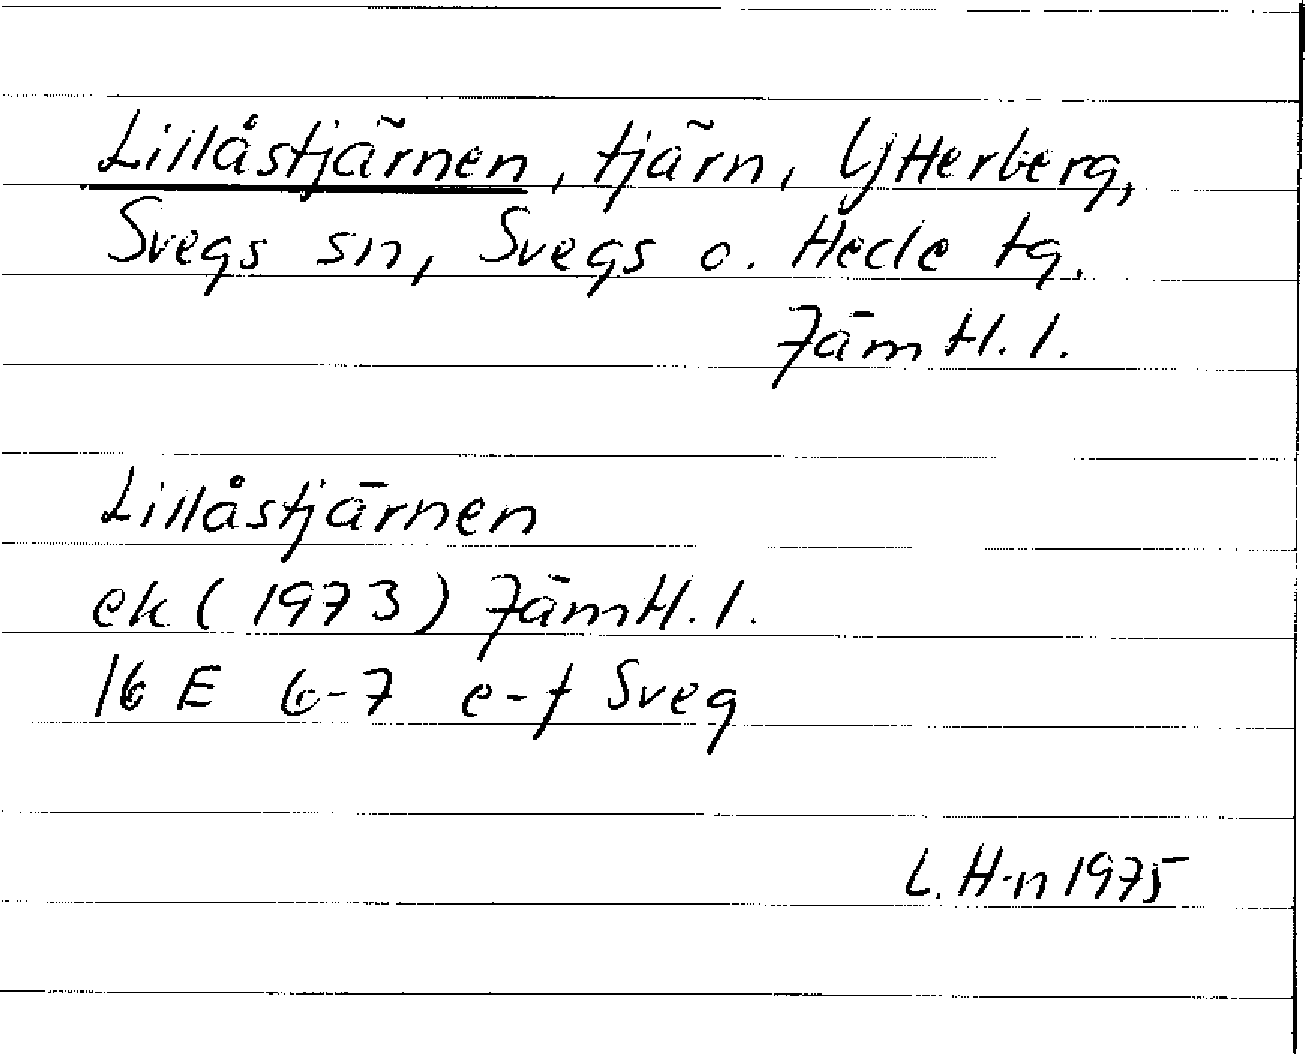 Lillåstjärnen, tjärn, Ytterberg,
Svegs sn, Svegs o. Hede tg.
Jämtl. l.
Lillåstjärnen
ek (1973) Jämtl. l.
16 E 6-7 e-f Sveg
L. H-n 1975